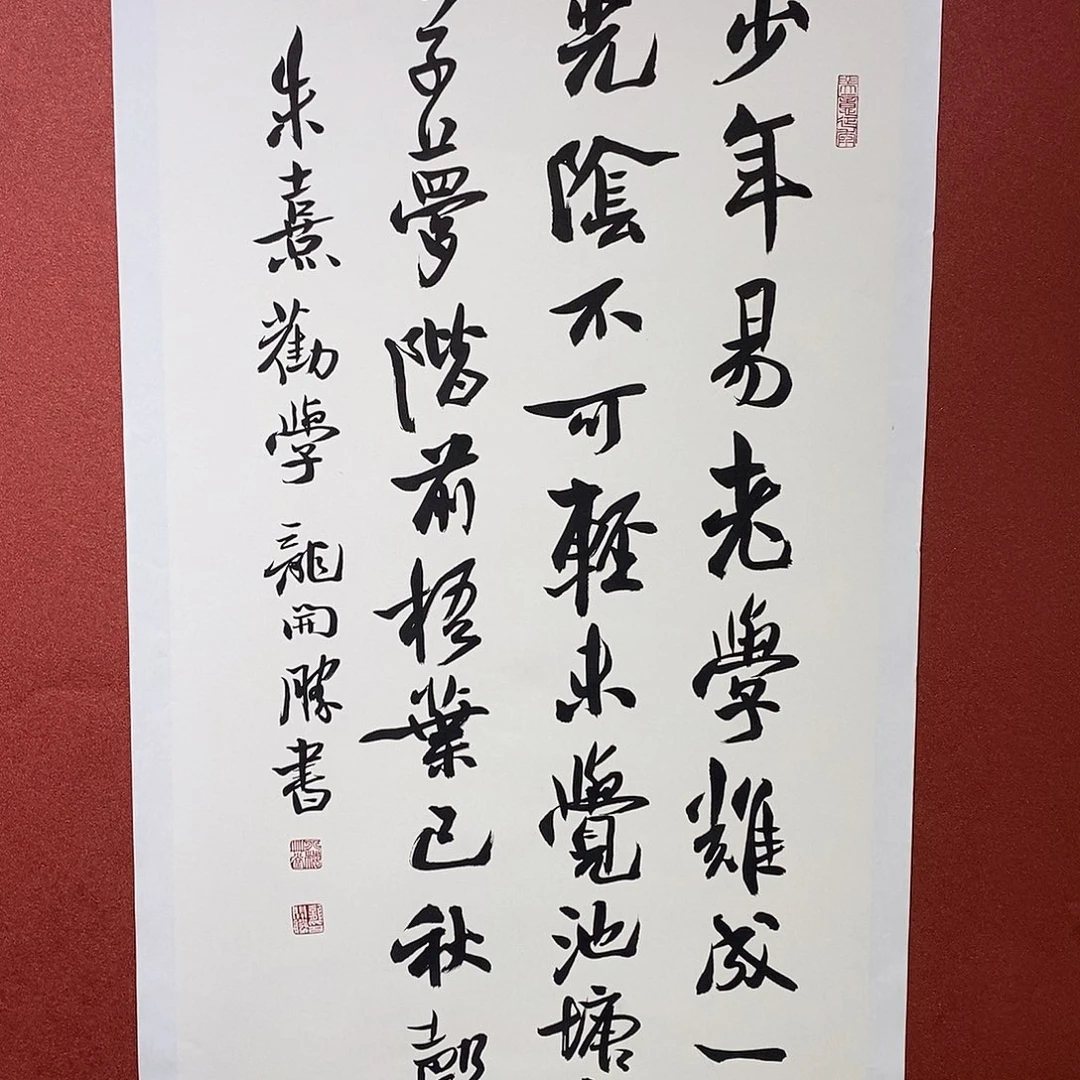 少年易老學難成一
光陰不可輕未覺池塘
夢階前梧葉已秋聲
朱熹勸學龍開勝書